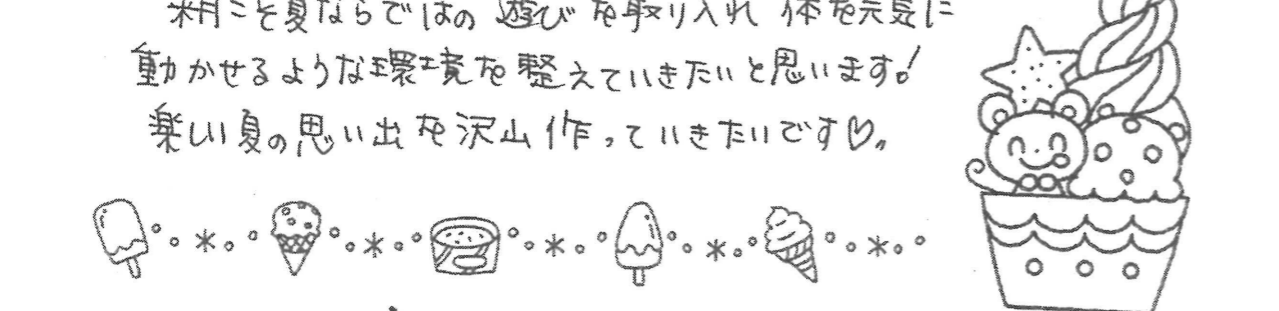 夏ならではの 遊びを取り入れ 体を元気に
動かせるような環境を整えていきたいと思います!
楽しい夏の思い出を沢山作っていきたいです♡。